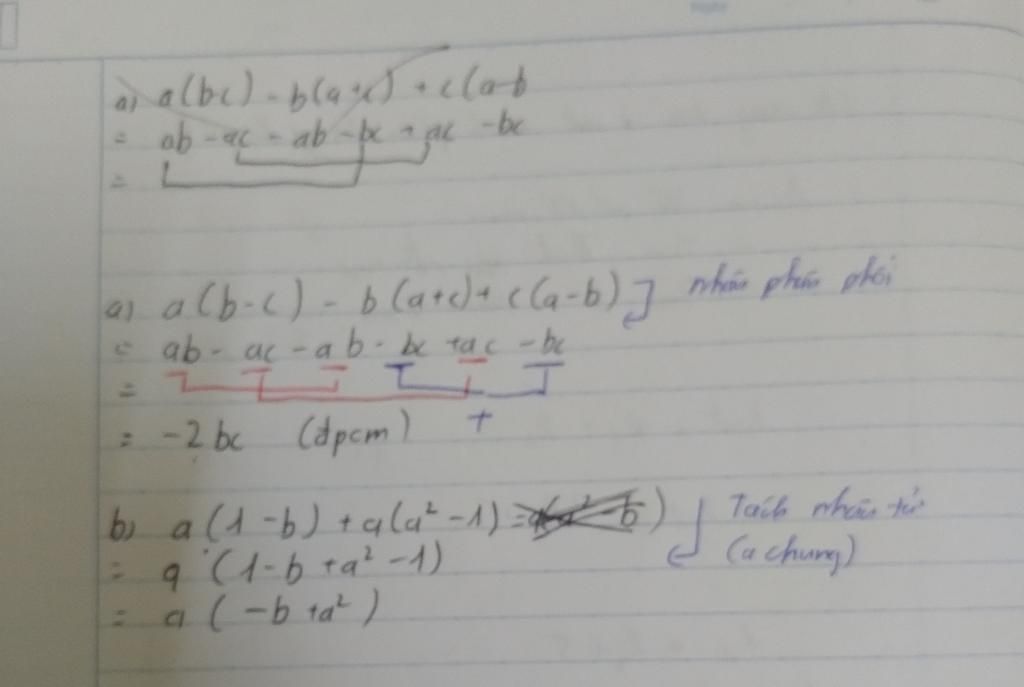 a) a(bc) - b(a+c) + c(a-b
= ab - ac - ab - bc + ac - bc
=
a) a(b-c) - b(a+c) + c(a-b) nhân phân phối
= ab - ac - ab - bc + ac - bc
=
+
= -2bc (đpcm)
b) a(1-b) + a(a² - 1) = ) Tách nhân tử
= a (1-b + a² - 1) (a chung)
= a (-b + a²)